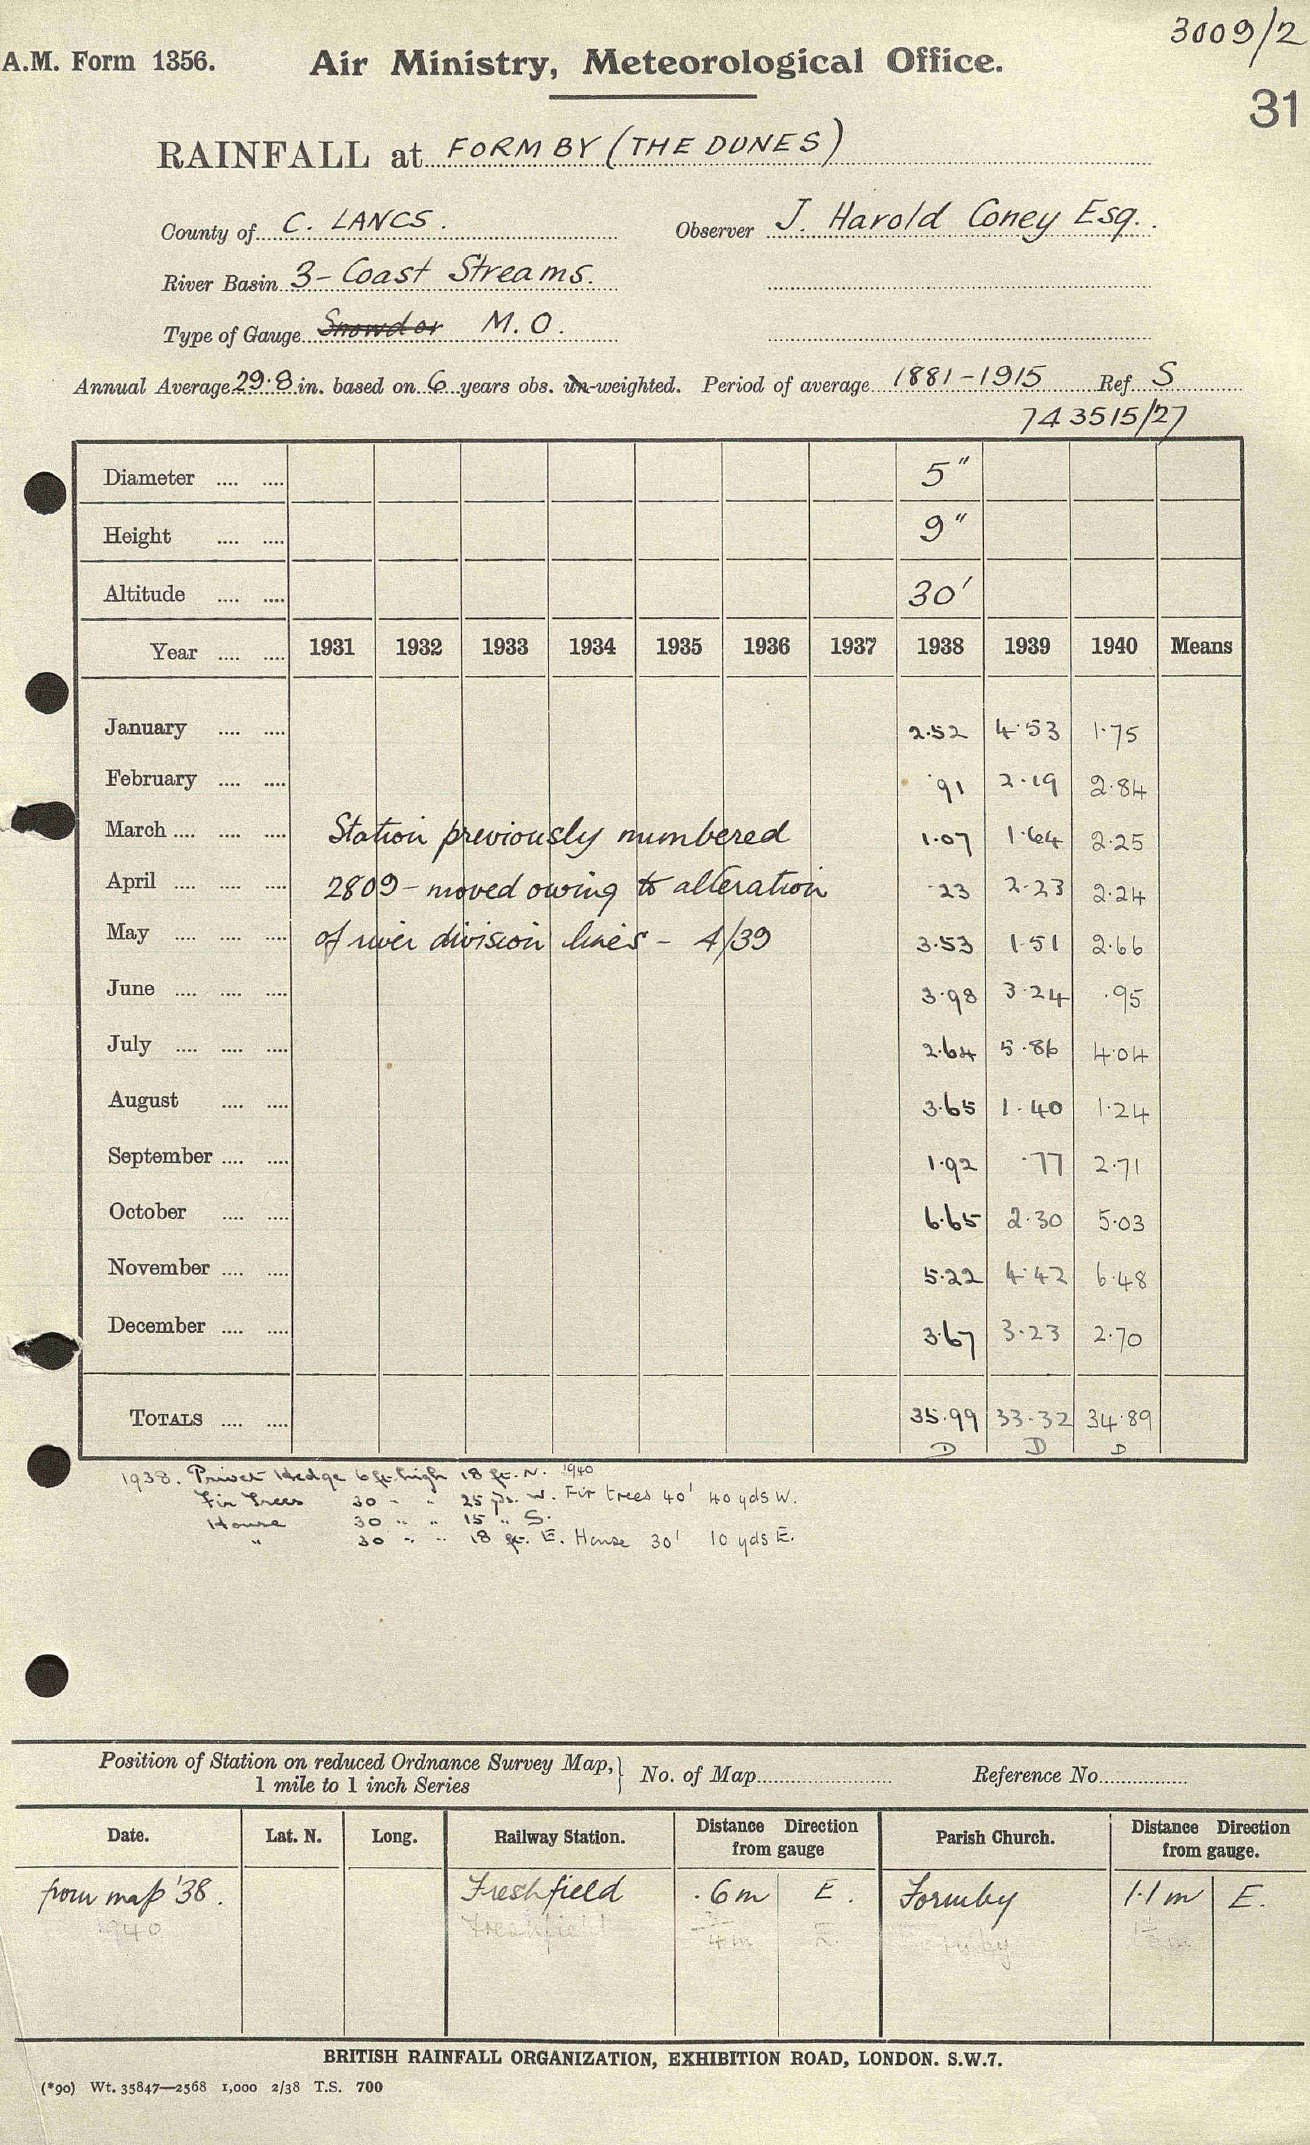 3009/2
A.M. Form 1356. Air Ministry, Meteorological Office.
31
RAINFALL at FORMBY (THE DUNES)
County of C. LANCS. Observer J. Harold Coney Esq.
River Basin 3 - Coast Streams.
Type of Gauge Snowdon M.O.
Annual Average 29.8 in. based on 6 years obs. un-weighted. Period of average 1881-1915 Ref S
743515/27
Diameter .... .... 5"
Height .... .... 9"
Altitude .... .... 30'
Year .... .... 1931 1932 1933 1934 1935 1936 1937 1938 1939 1940 Means
January .... .... 2.52 4.53 1.75
February .... .... .91 2.19 2.84
March .... .... .... Station previously numbered 1.07 1.64 2.25
April .... .... .... 2809 - moved owing to alteration .23 2.23 2.24
May .... .... .... of river division lines - 4/39 3.53 1.51 2.66
June .... .... .... 3.98 3.24 .95
July .... .... .... 2.64 5.86 4.04
August .... .... 3.65 1.40 1.24
September .... .... 1.92 .77 2.71
October .... .... 6.65 2.30 5.03
November .... .... 5.22 4.42 6.48
December .... .... 3.67 3.23 2.70
TOTALS .... .... 35.99 33.32 34.89
D D D
1938. Privet Hedge 6 ft. high 18 ft. N. 1940
Fir Trees 30 " " 25 yds. W. Fir trees 40' 40 yds W.
House 30 " " 15 " S.
" 30 " " 18 ft. E. House 30' 10 yds E.
Position of Station on reduced Ordnance Survey Map, 1 mile to 1 inch Series } No. of Map Reference No.
Date. Lat. N. Long. Railway Station. Distance Direction from gauge Parish Church. Distance Direction from gauge.
from map '38. Freshfield .6 m E. Formby 1.1 m E.
1940 Freshfield 3/4 m E. Formby
BRITISH RAINFALL ORGANIZATION, EXHIBITION ROAD, LONDON. S.W.7.
(*90) Wt. 35847—2568 1,000 2/38 T.S. 700